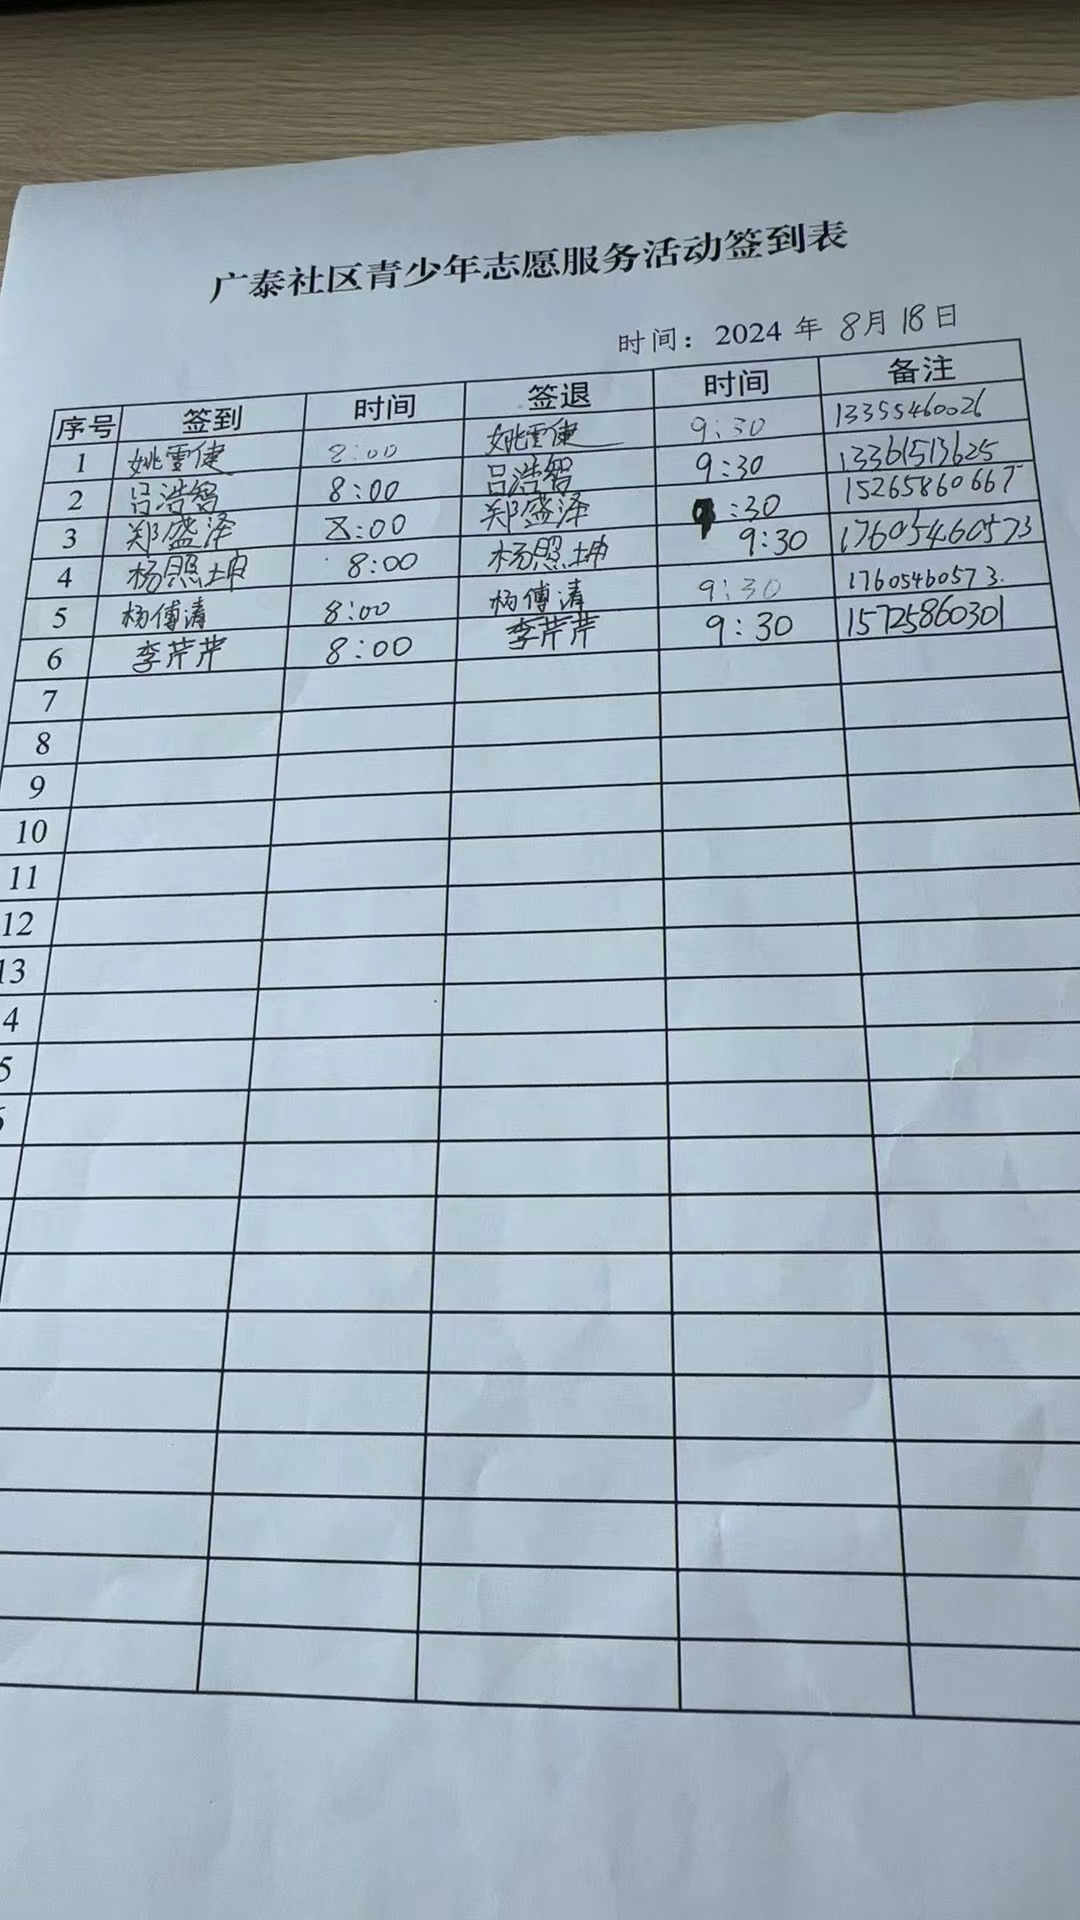 广泰社区青少年志愿服务活动签到表
时间：2024 年 8月18日
序号 签到 时间 签退 时间 备注
1 姚雪倢 8:00 姚雪倢 9:30 13355460026
2 吕浩智 8:00 吕浩智 9:30 13361513625
3 郑盛泽 8:00 郑盛泽 9:30 15265860667
4 杨照坤 8:00 杨照坤 9:30 17605460573
5 杨傅清 8:00 杨傅清 9:30 17605460573.
6 李芹芹 8:00 李芹芹 9:30 15725860301
7
8
9
10
11
12
13
4
5